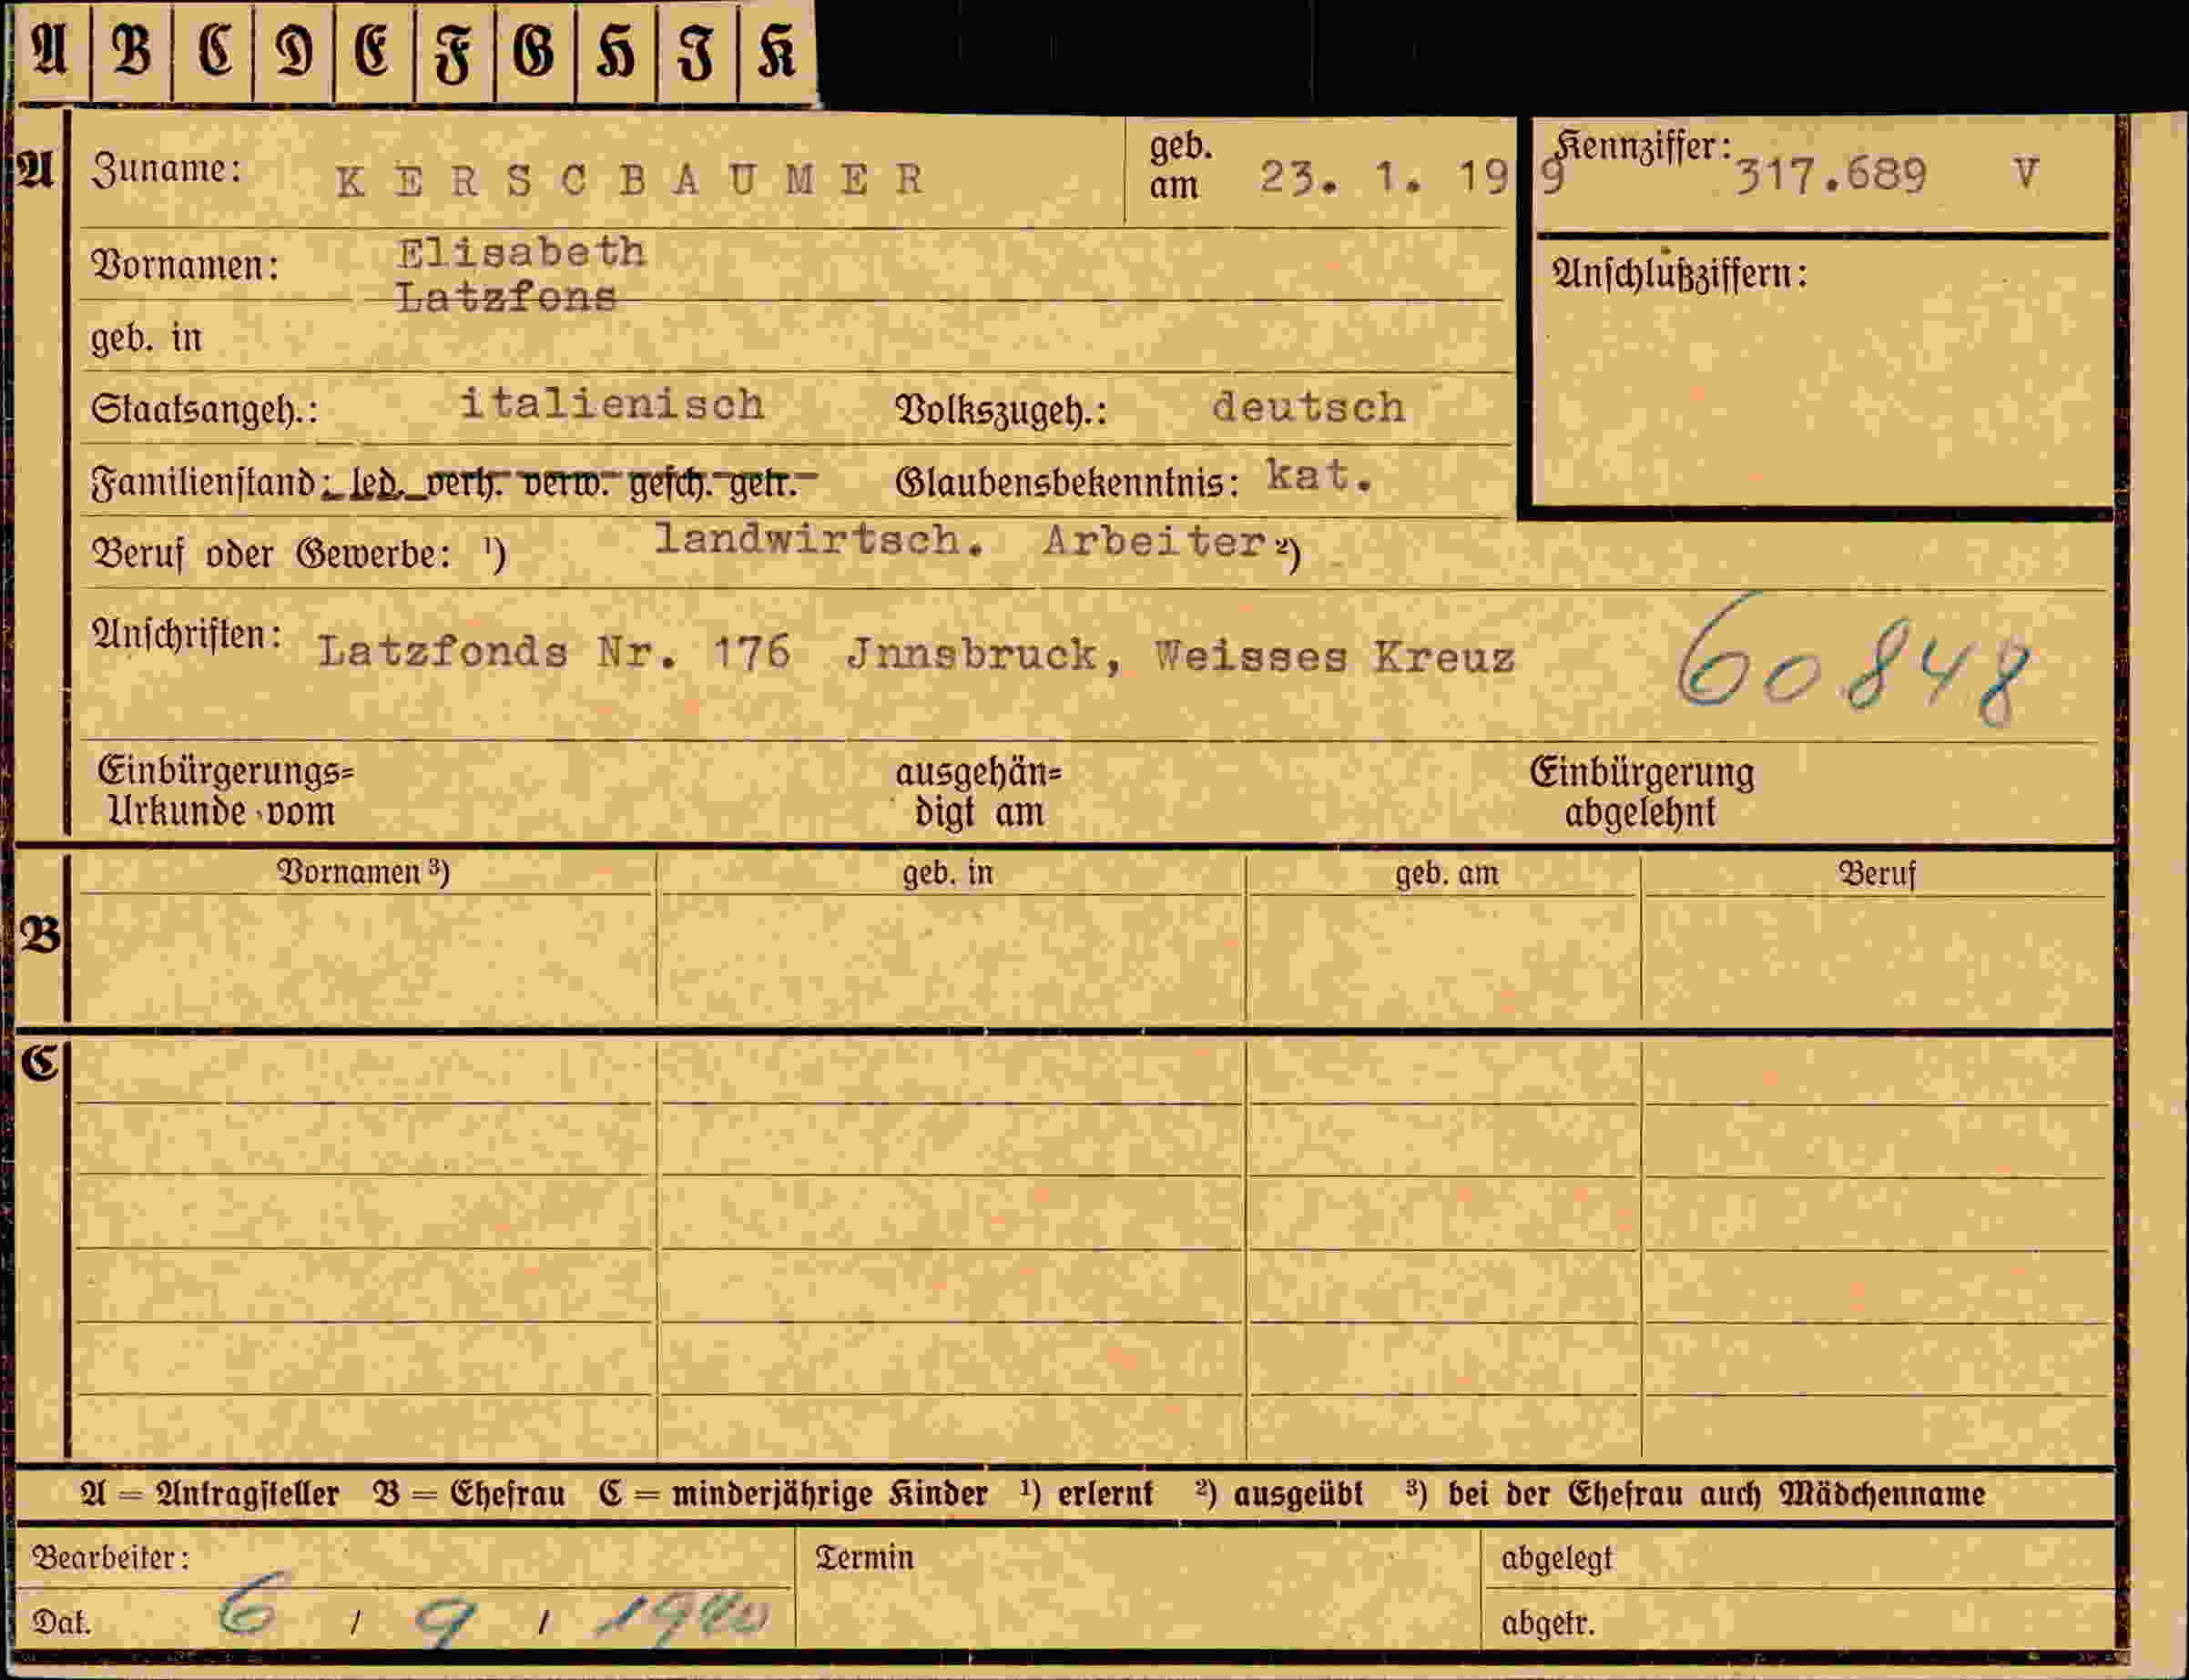 A B C D E F G H I K
A Zuname: KERSCBAUMER geb. am 23. 1. 19 9 Kennziffer: 317.689 V
Vornamen: Elisabeth
Latzfons
geb. in
Anschlußziffern:
Staatsangeh.: italienisch Volkszugeh.: deutsch
Familienstand: led. verh. verw. gesch. getr. Glaubensbekenntnis: kat.
Beruf oder Gewerbe: ¹) landwirtsch. Arbeiter ²)
Anschriften: Latzfonds Nr. 176 Jnnsbruck, Weisses Kreuz 60848
Einbürgerungs= ausgehän= Einbürgerung
Urkunde vom digt am abgelehnt
B Vornamen ³) geb. in geb. am Beruf
C
A = Antragsteller B = Ehefrau C = minderjährige Kinder ¹) erlernt ²) ausgeübt ³) bei der Ehefrau auch Mädchenname
Bearbeiter: Termin abgelegt
Dat. 6 / 9 / 1940 abgetr.